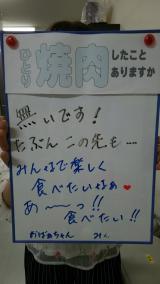 ひとり焼肉したこと
ありますか
無いです！
たぶんこの先も…
みんなで楽しく
食べたいなぁ♥
あ〜〜っ!!
食べたい!!
おばぁちゃん